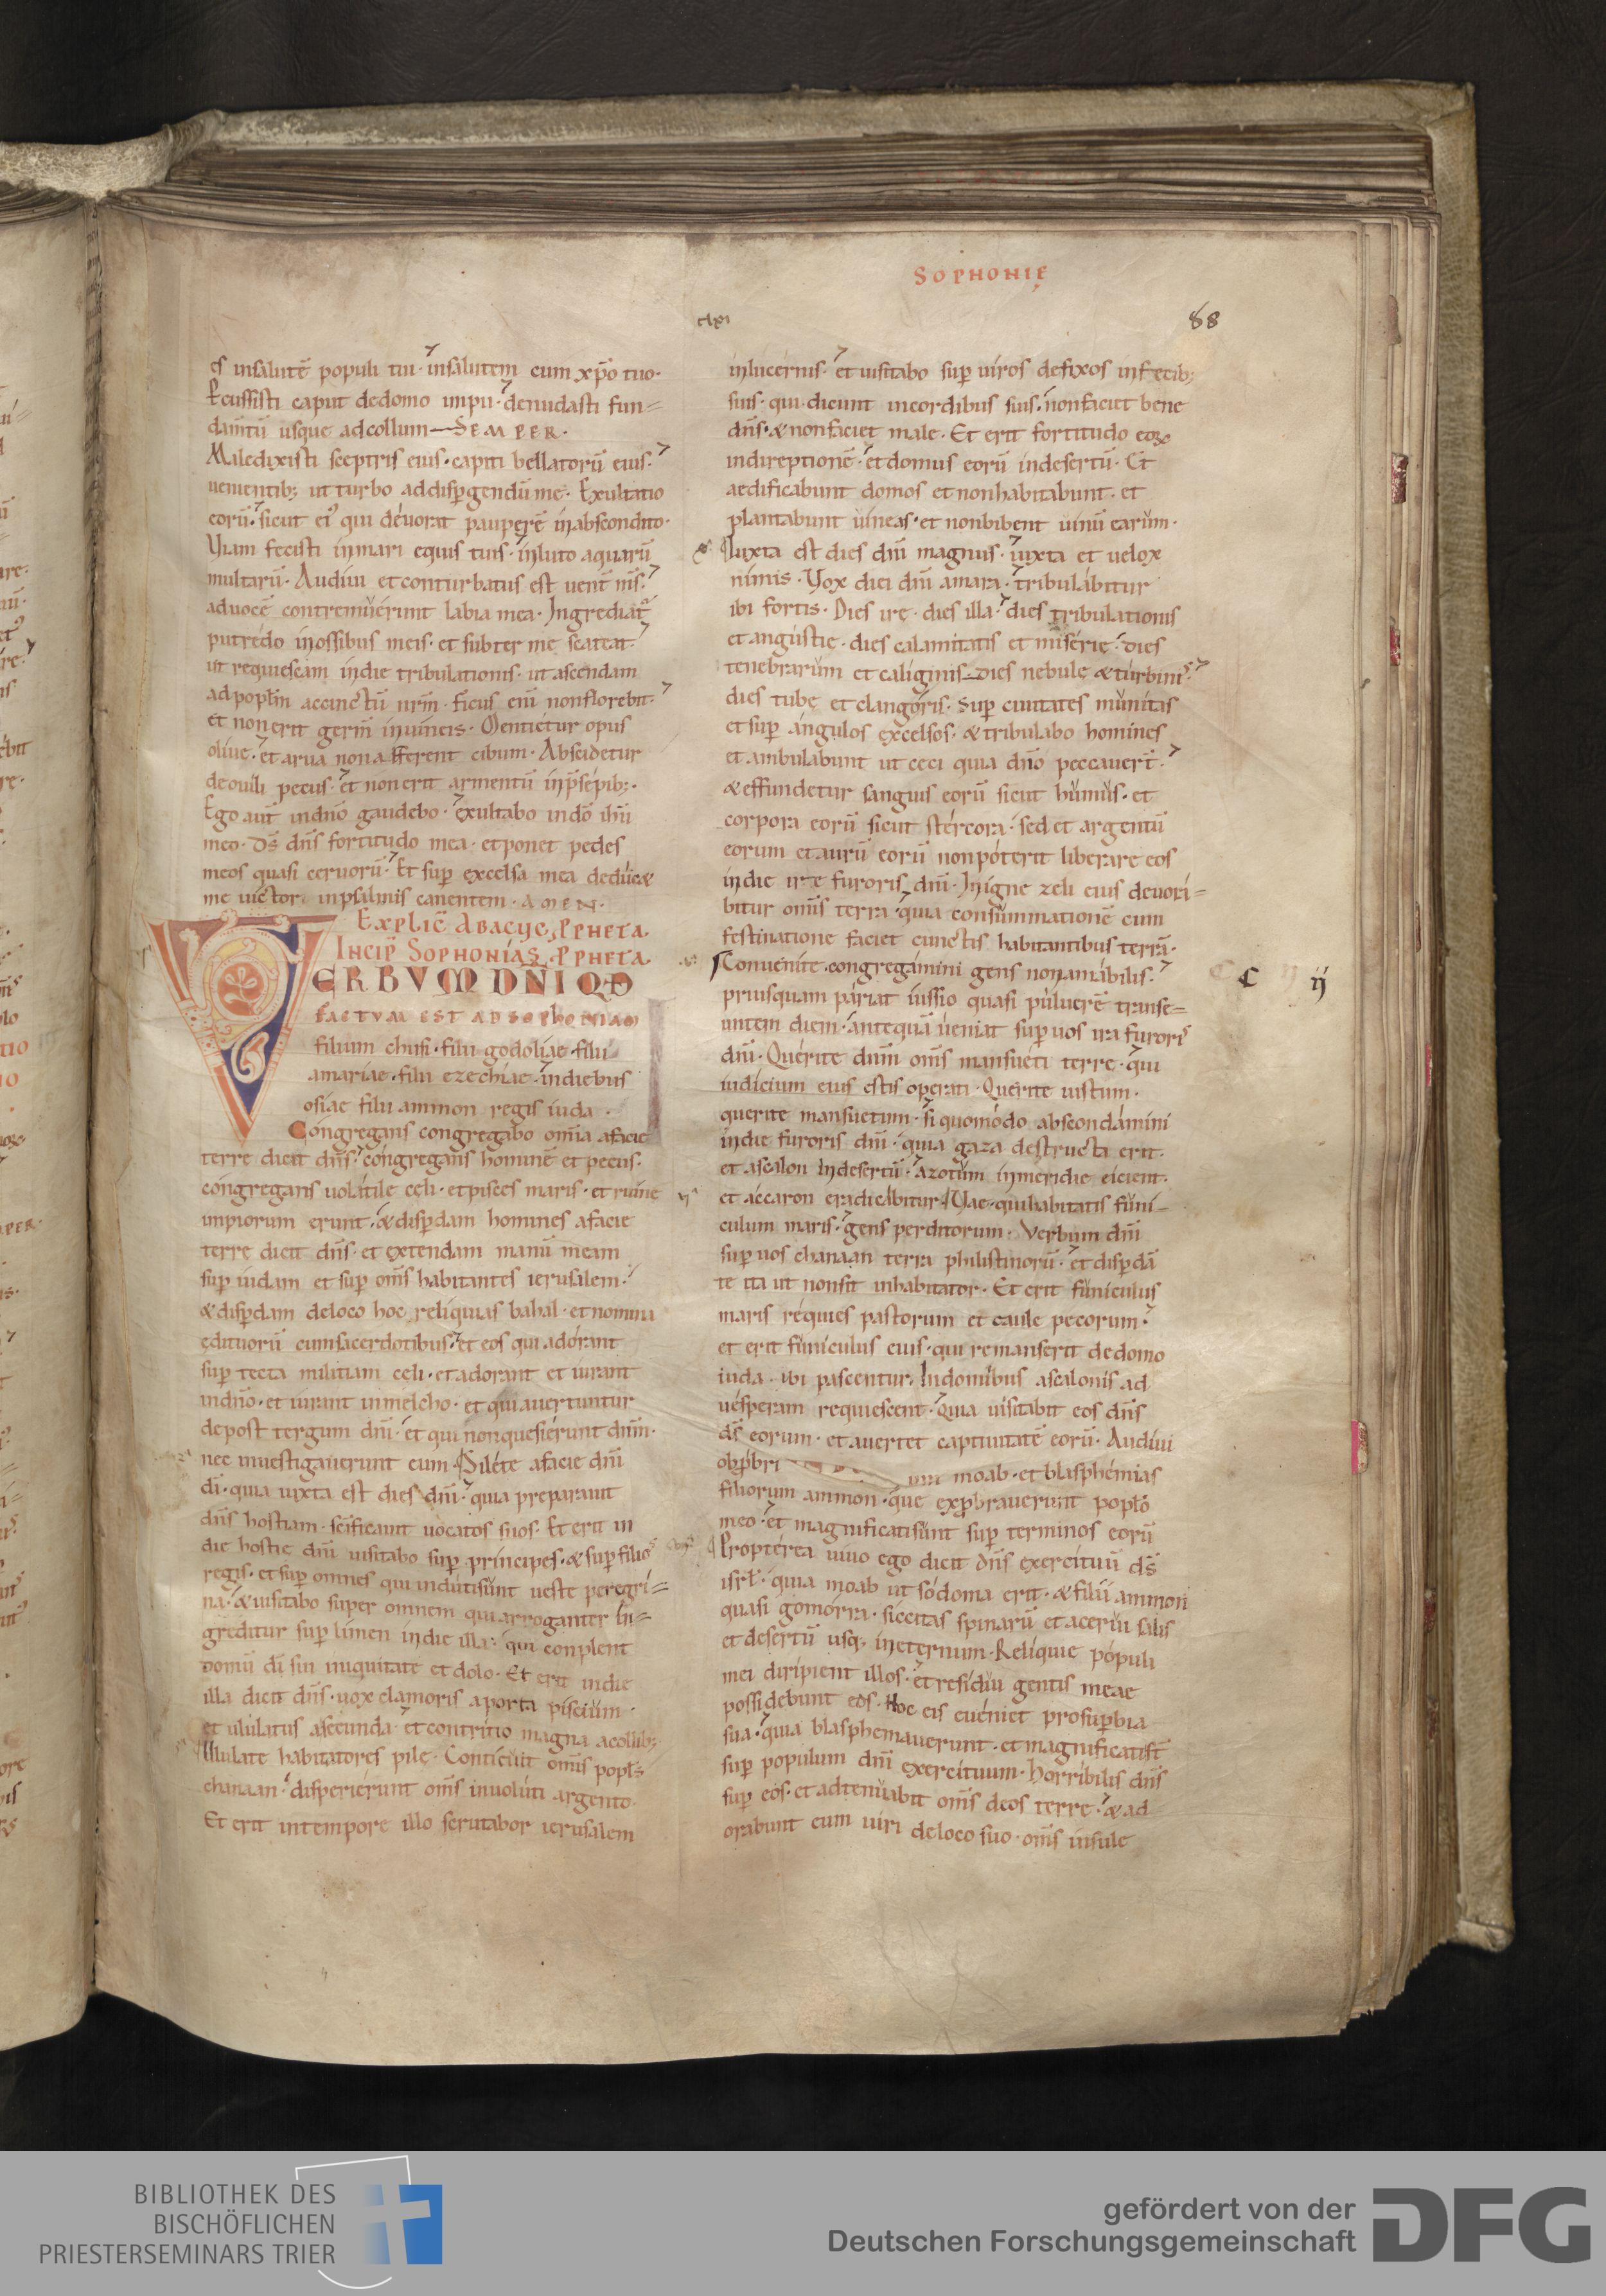 SOPHONIĘ
clxi
88
es insalutē populi tui · insalutem cum xp̄o tuo·
Pcussisti caput dedomo impii · denudasti fun=
dam̄tū usque adcollum—SEMPER·
Maledixisti sceptris eius · capiti bellatorū eius·
uenientib; ut turbo addispgendū me · Exultatio
eorū · sicut ei' qui deuorat pauperē inabscondito·
Viam fecisti inmari equis tuis · inluto aquarū
multarū · Audiui et conturbatus est uent̄ m̄s·
aduocē contremuerunt labia mea · Ingrediat̄
putredo inossibus meis · et subter me scateat·
ut requiescam indie tribulationis · ut ascendam
adpopl̄m accinctū n̄rm · ficus enī nonflorebit·
et non erit germ̄ inuineis · Mentietur opus
oliue · et arua non afferent cibum · Abscidetur
deouili pecus · et non erit armentū inp̄sepib;·
Ego aut̄ indn̄o gaudebo · exultabo indō ih̄u
meo · Ds̄ dn̄s fortitudo mea · et ponet pedes
meos quasi ceruorū · Et sup excelsa mea deduc&
me uictori inpsalmis canentem · AMEN·
EXPLIC̄ ABACUC, PPHETA·
INCIP̄ SOPHONIAS, PPHETA·
VERBVM DN̄I QD
FACTVM EST AD SOPHONIAM
filium chusi · filii godoliae · filii
amariae · filii ezechiae · indiebus
osiae filii ammon regis iuda ·
Congregans congregabo om̄ia afacie
terre dicit dn̄s · congregans hominē et pecus·
congregans uolatile celi · et pisces maris · et ruine
impiorum erunt · & dispdam homines afacie
terre dicit dn̄s · et extendam manū meam
sup iudam et sup om̄s habitantes ierusalem·
& dispdam deloco hoc reliquias bahal · et nomina
edituorū cumsacerdotibus · et eos qui adorant
sup tecta militiam celi · et adorant et iurant
indn̄o · et iurant inmelcho · et qui auertuntur
depost tergum dn̄i · et qui nonquesierunt dn̄m·
nec inuestigauerunt eum · Silete afacie dn̄i
dī · quia iuxta est dies dn̄i · quia preparauit
dn̄s hostiam · sc̄ificauit uocatos suos · Et erit in
die hostie dn̄i uisitabo sup principes · & sup filios
regis · et sup omnes qui indutisunt ueste peregri=
na · & uisitabo super omnem qui arroganter in=
greditur sup limen indie illa · qui conplent
domū dī sui iniquitate et dolo · Et erit indie
illa dicit dn̄s · uox clamoris aporta piscium ·
et ululatus asecunda · et contritio magna acollib;
Vlulate habitatores pile · Conticuit om̄s popl̄s
chanaan · disperierunt om̄s inuoluti argento·
Et erit intempore illo scrutabor ierusalem
inlucernis · et uisitabo sup uiros defixos infecib;
suis · qui dicunt incordibus suis · nonfaciet bene
dn̄s · & nonfaciet male · Et erit fortitudo eorꝝ
indireptionē · et domus eorū indesertū · Et
aedificabunt domos et nonhabitabunt · et
plantabunt uineas · et nonbibent uinū earum·
Iuxta est dies dn̄i magnus · iuxta et uelox
nimis · Vox diei dn̄i amara · tribulabitur
ibi fortis · Dies ire · dies illa · dies tribulationis
et angustie · dies calamitatis et miserie · dies
tenebrarum et caliginis · dies nebule & turbinis·
dies tube et clangoris · Sup ciuitates munitas
et sup angulos excelsos · & tribulabo homines
et ambulabunt ut ceci quia dn̄o peccauer̄t·
& effundetur sanguis eorū sicut humus · et
corpora eorū sicut stercora · sed et argentū
eorum et aurū eorū nonpoterit liberare eos
indie irae furoris dn̄i · Inigne zeli eius deuori=
bitur om̄s terra · quia consummationē cum
festinatione faciet cunctis habitantibus terrā·
Conuenite · congregamini gens nonamabilis·
priusquam pariat iussio quasi puluerē transe=
untem diem · antequā ueniat sup uos ira furoris
dn̄i · Querite dn̄m om̄s mansueti terre · qui
iudicium eius estis operati · Querite iustum·
querite mansuetum · si quomodo abscondamini
indie furoris dn̄i · quia gaza destructa erit·
et ascalon indesertū · azotum inmeridie eicient·
et accaron eradicabitur · Vae · quihabitatis funi-
culum maris · gens perditorum · Verbum dn̄i
sup uos chanaan terra philistinorū · et dispdā
te ita ut nonsit inhabitator · Et erit funiculus
maris requies pastorum et caule pecorum·
et erit funiculus eius · qui remanserit dedomo
iuda · ibi pascentur · Indomibus ascalonis ad
uesperam requiescent · Quia uisitabit eos dn̄s
ds̄ eorum · et auertet captiuitatē eorū · Audiui
obp̄bri moab · et blasphemias
filiorum ammon · que exp̄brauerunt popl̄o
meo · et magnificatisunt sup terminos eorū
Propterea uiuo ego dicit dn̄s exercituū ds̄
isrl̄ · quia moab ut sodoma erit · & filii ammon
quasi gomorra · siccitas spinarū et acerui salis
et desertū usq; ineternum · Reliquie populi
mei diripient illos · et residui gentis meae
possidebunt eos · Hoc eis eueniet prosupbia
sua · quia blasphemauerunt · et magnificatist̄
sup populum dn̄i exercituum · Horribilis dn̄s
sup eos · et adtenuabit om̄s deos terre · & ad
orabunt eum uiri deloco suo · om̄s insule
C ij
BIBLIOTHEK DES
BISCHÖFLICHEN
PRIESTERSEMINARS TRIER
gefördert von der
Deutschen Forschungsgemeinschaft
DFG